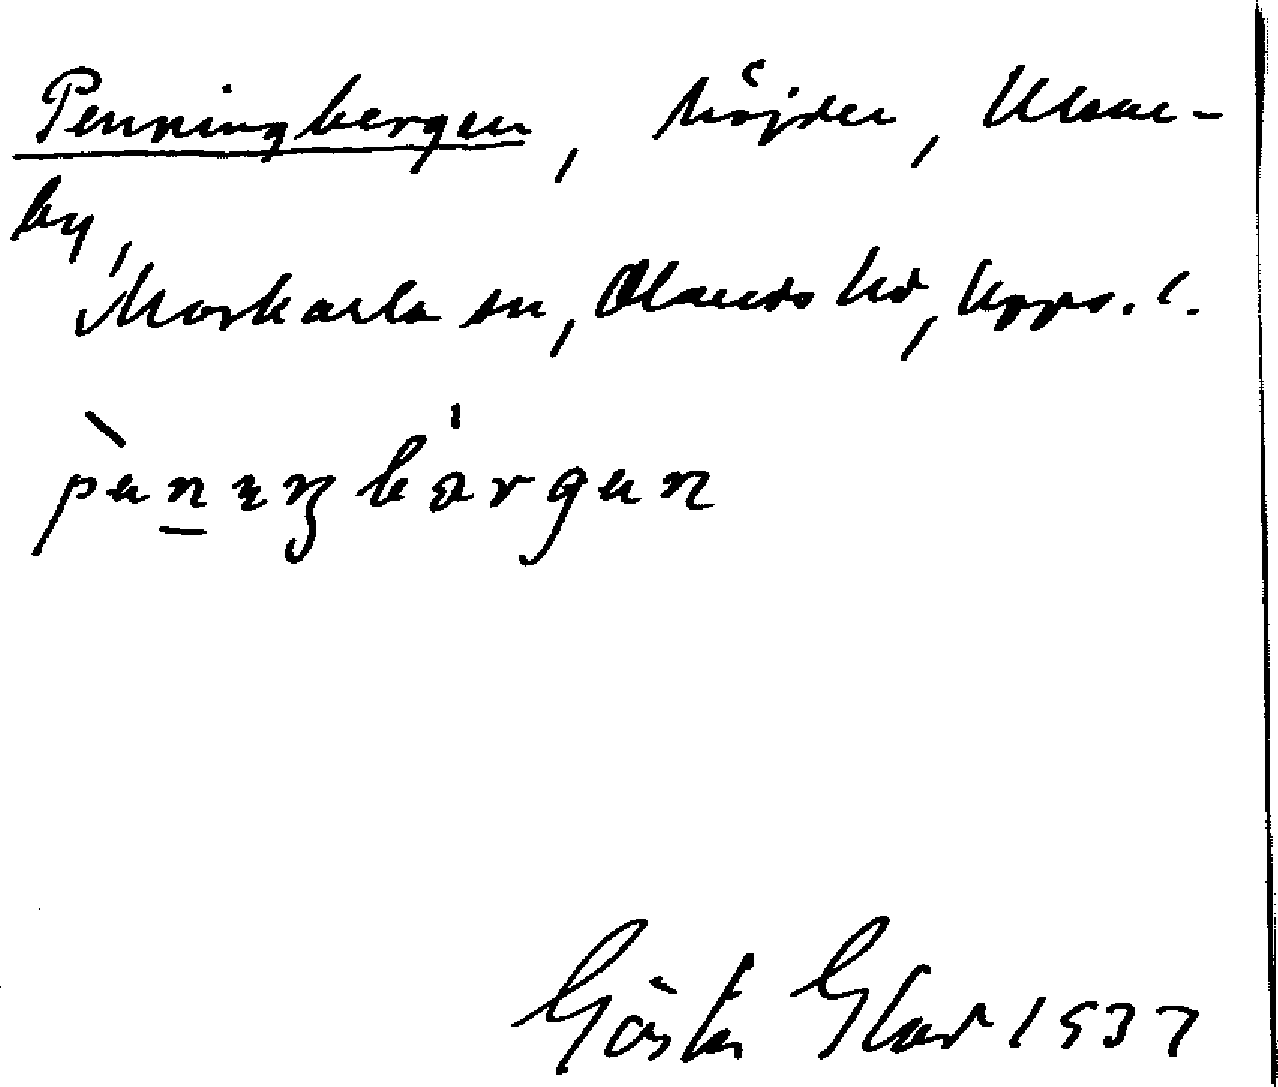 Penningbergen, höjder, Ulune-
by,
Morkarla sn, Olands hd, Upps. l.
pęnıŋbärgan
Gösta Elow 1937